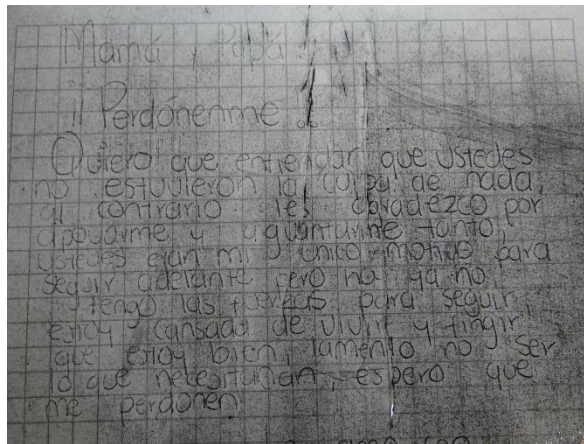 Mamá y Papá
¡¡Perdónenme!!
Quiero que entiendan que ustedes
no estuvieron la culpa de nada,
al contrario les agradezco por
apoyarme y aguantarme tanto,
ustedes eran mi único motivo para
seguir adelante pero no ya no
tengo las fuerzas para seguir,
estoy cansada de vivir y fingir
que estoy bien, lamento no ser
lo que necesitaban, espero que
me perdonen